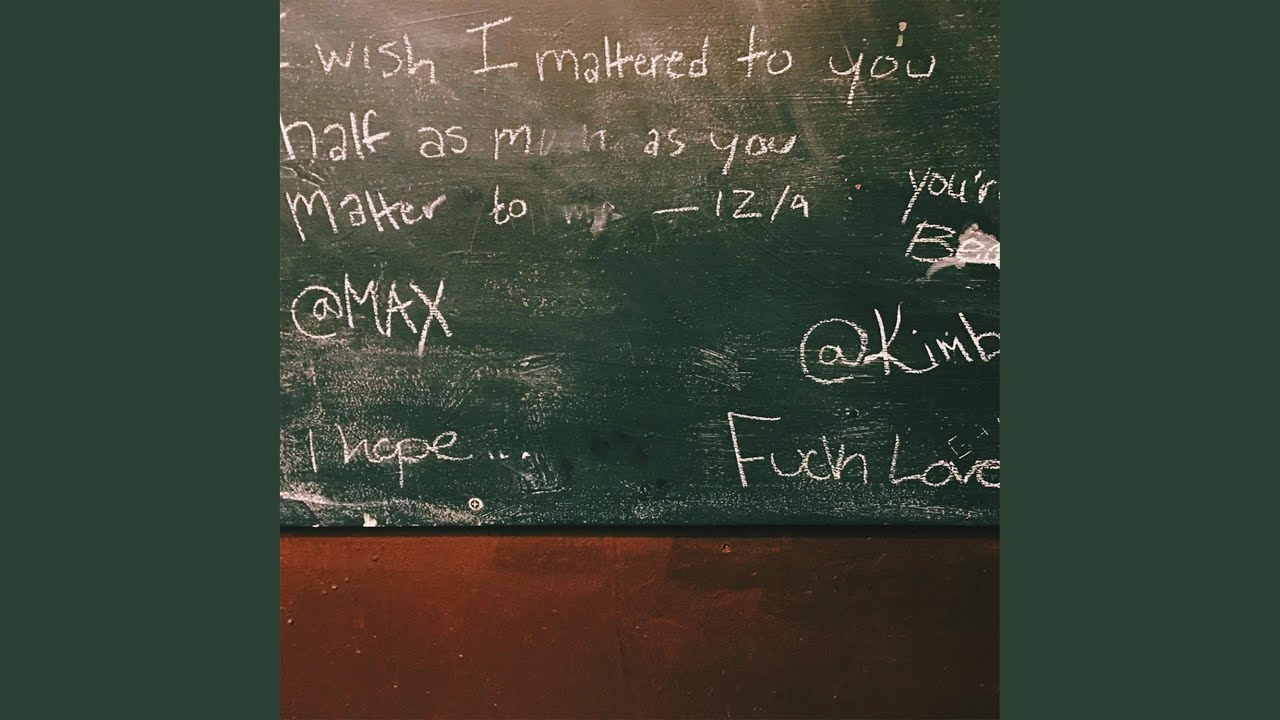 I wish I mattered to you
half as much as you
Matter to me — 12/9
you'r
@MAX
@Kimb
I hope...
Fuck Love